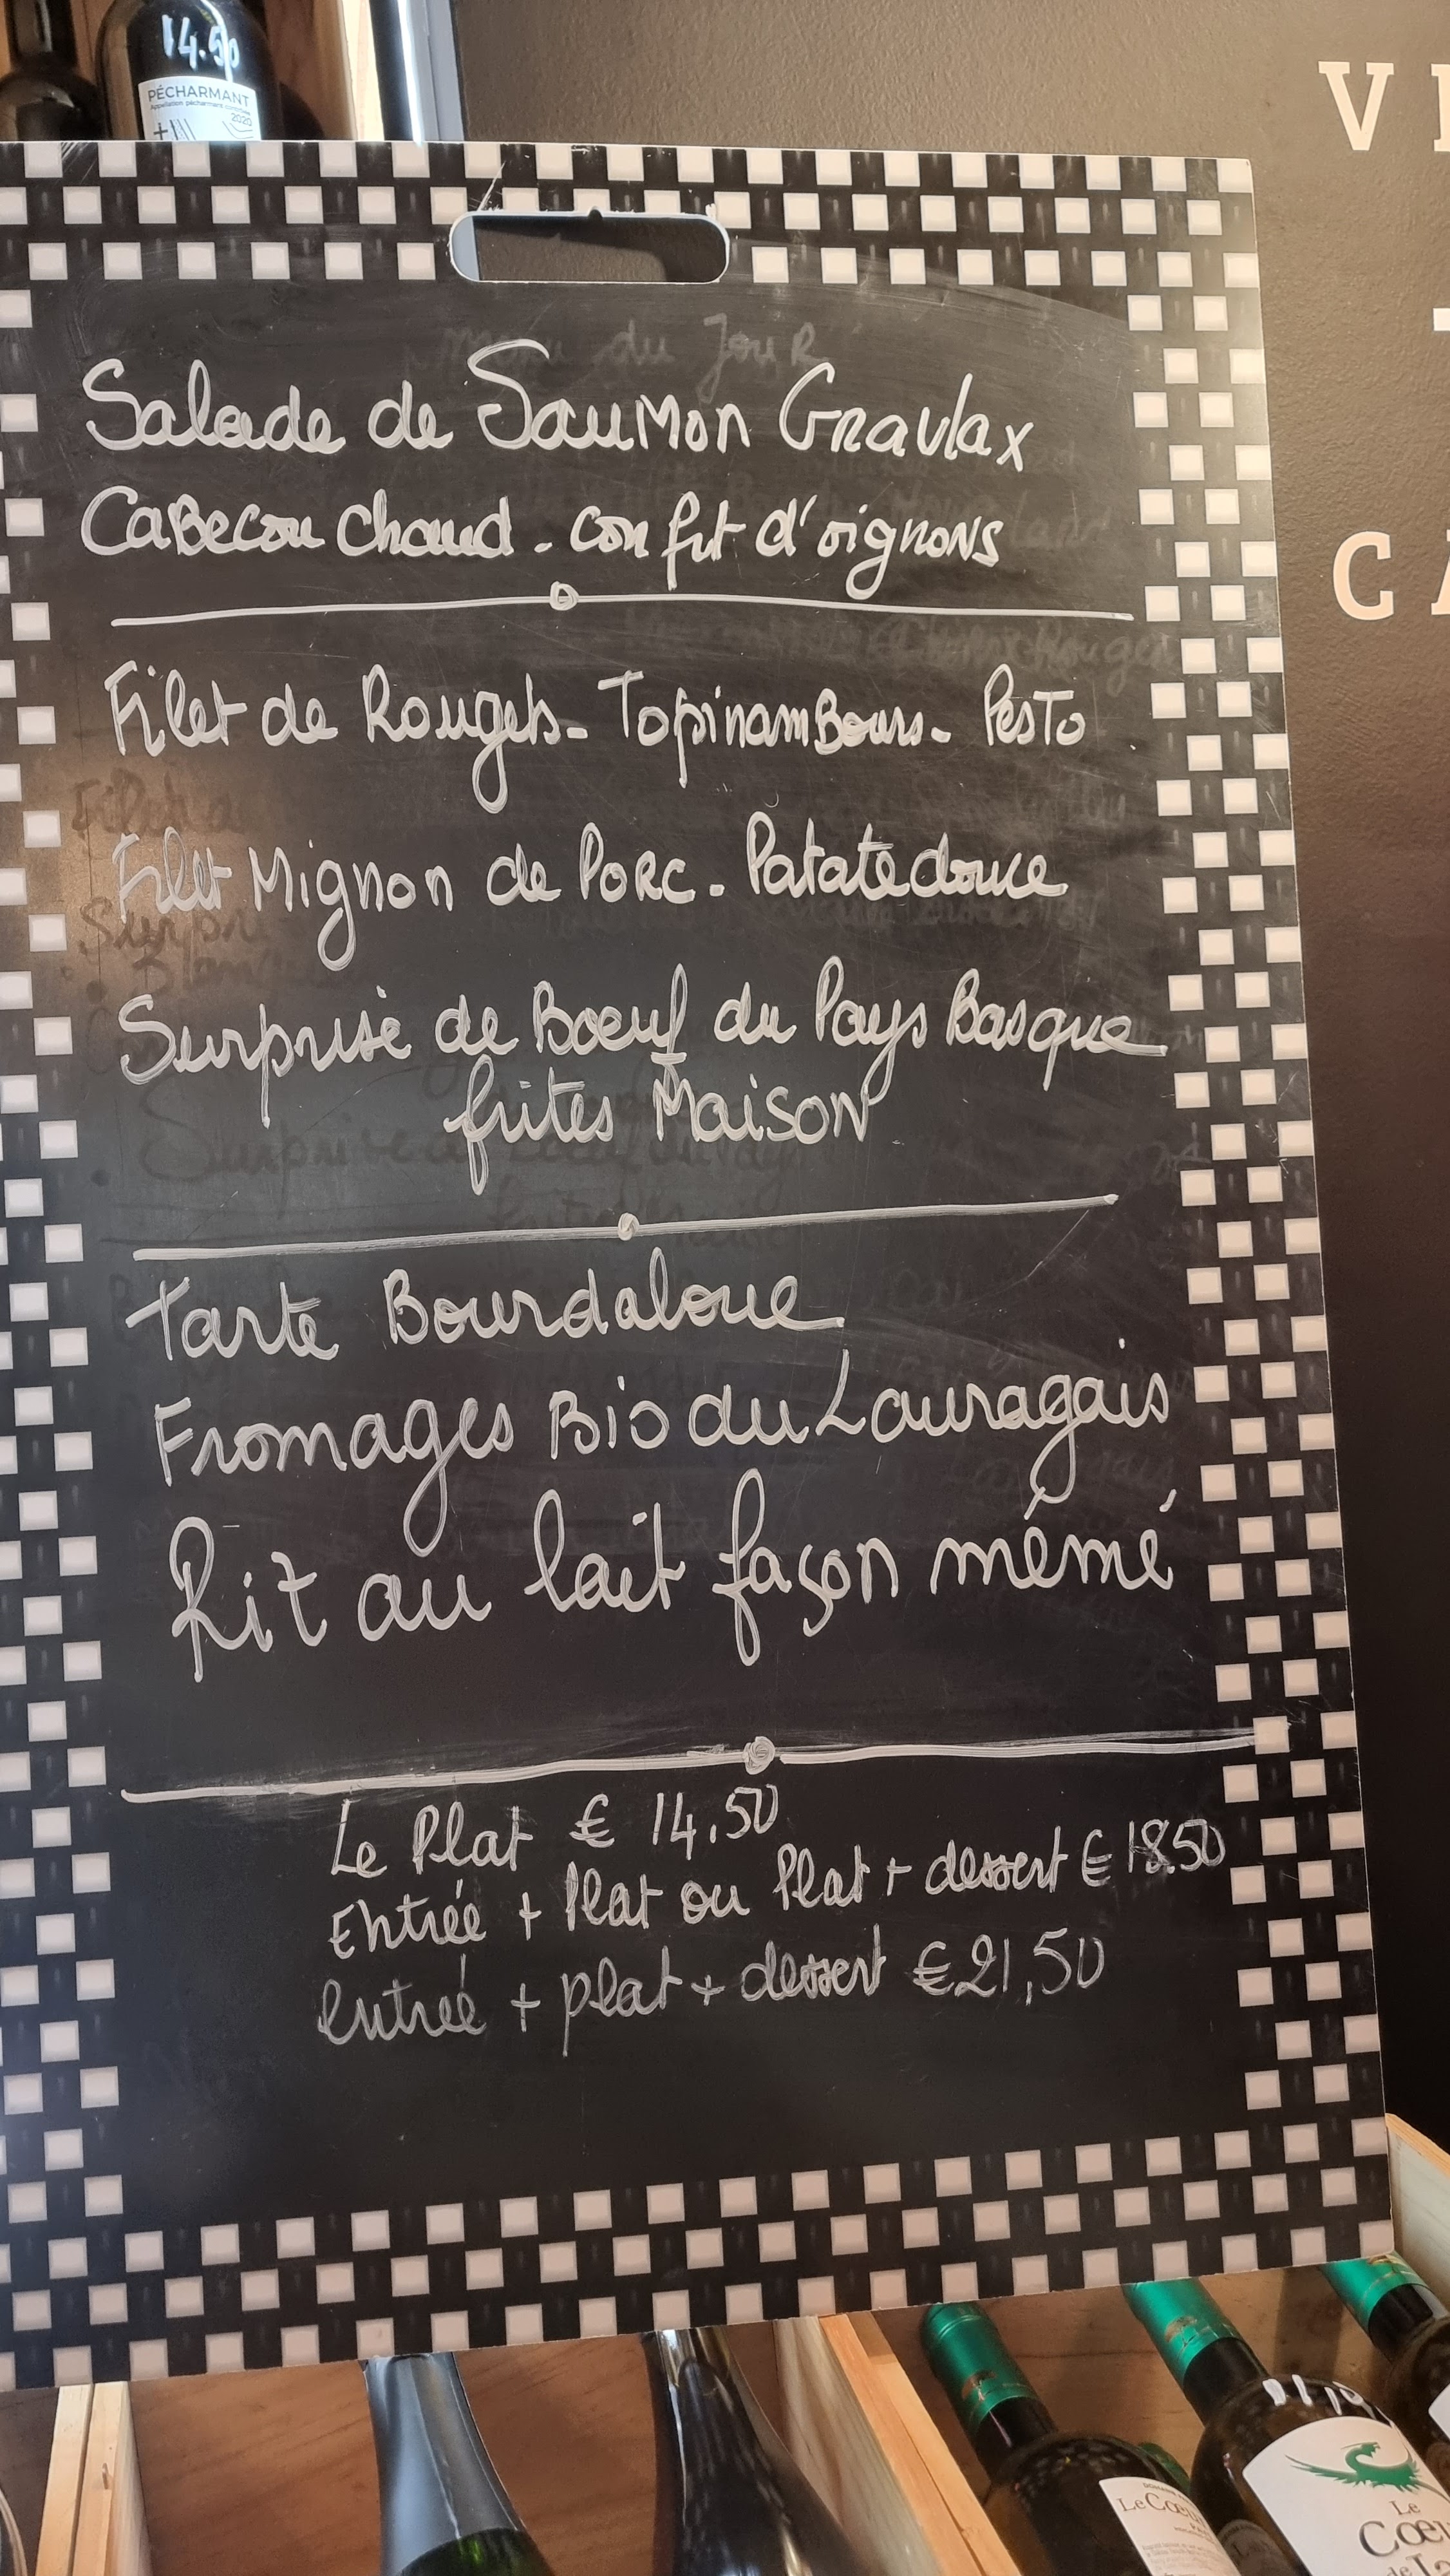 14.50
PÉCHARMANT
Appellation pécharmant contrôlée
2020
Menu du Jour
Salade de Saumon Gravlax
Cabecou chaud - confit d'oignons
Filet de Rougets - Topinambours - Pesto
Filet Mignon de Porc - Patate douce
Surprise de Boeuf du Pays Basque
frites Maison
Tarte Bourdaloue
Fromages Bio du Lauragais
Rit au lait façon mémé
Le Plat € 14,50
Entrée + Plat ou Plat + dessert € 18.50
entrée + plat + dessert € 21,50
V
CA
Le Cœu
Le
Cœu
de